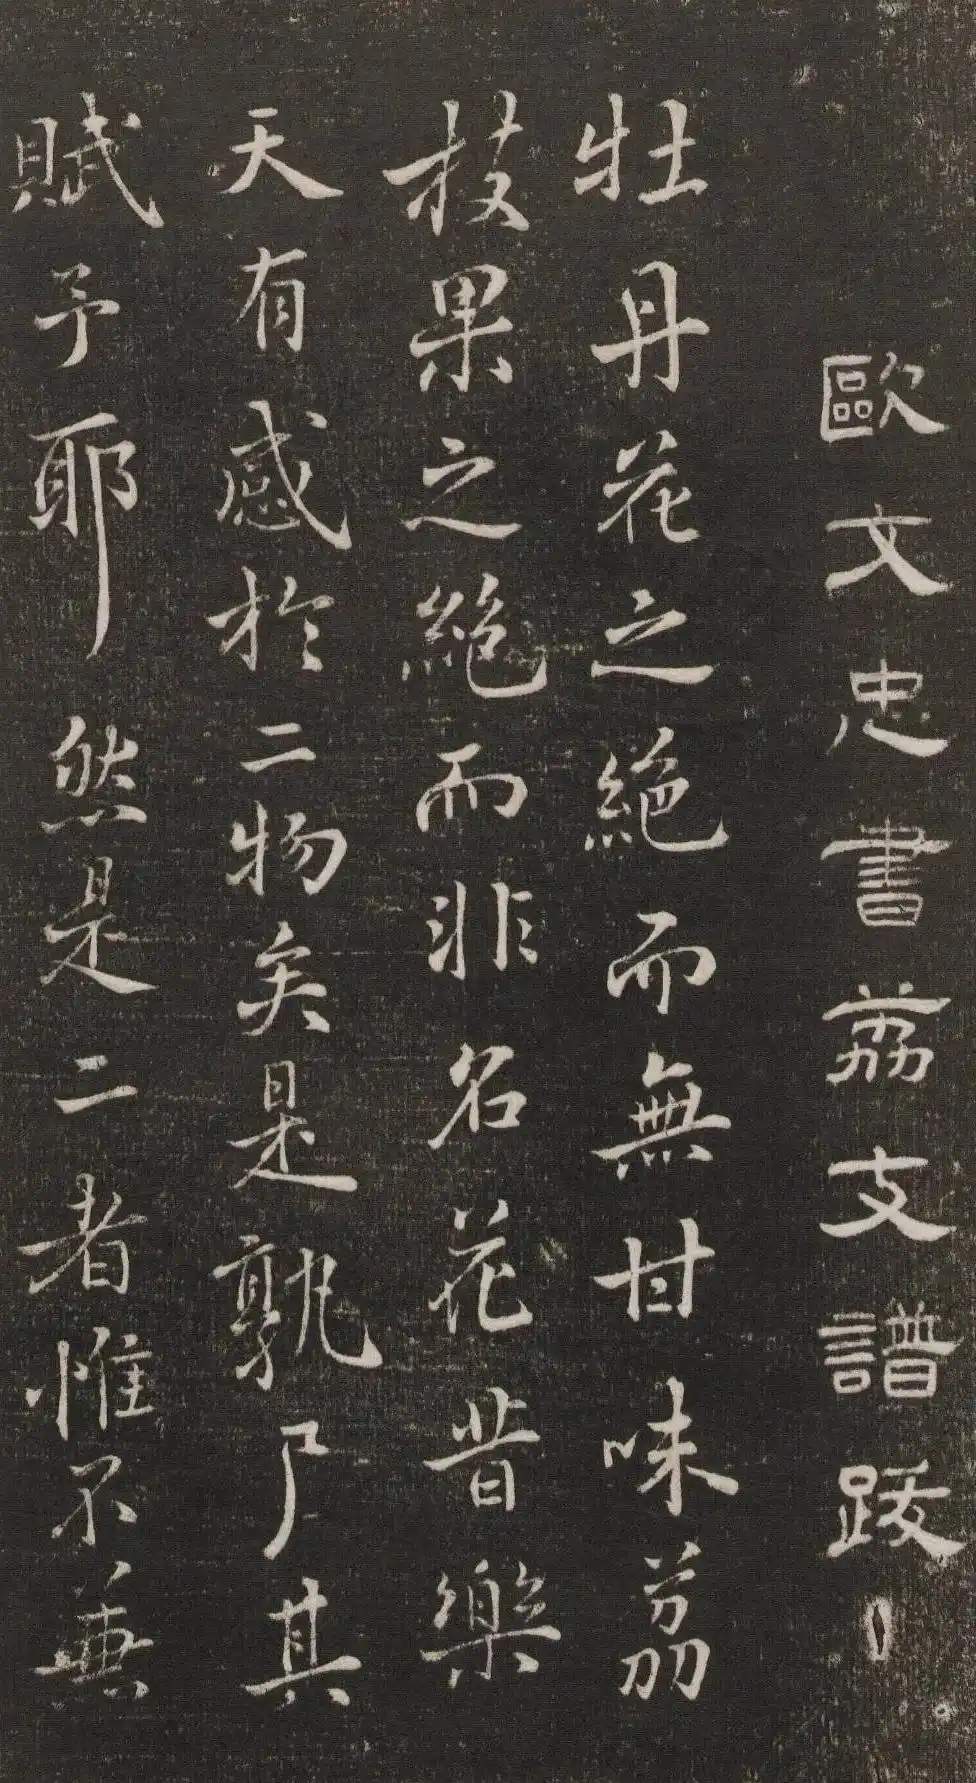 歐文忠書荔支譜跋
牡丹花之絶而無甘味荔
枝果之絶而非名花昔樂
天有感於二物矣是孰尸其
賦予耶然是二者惟不兼